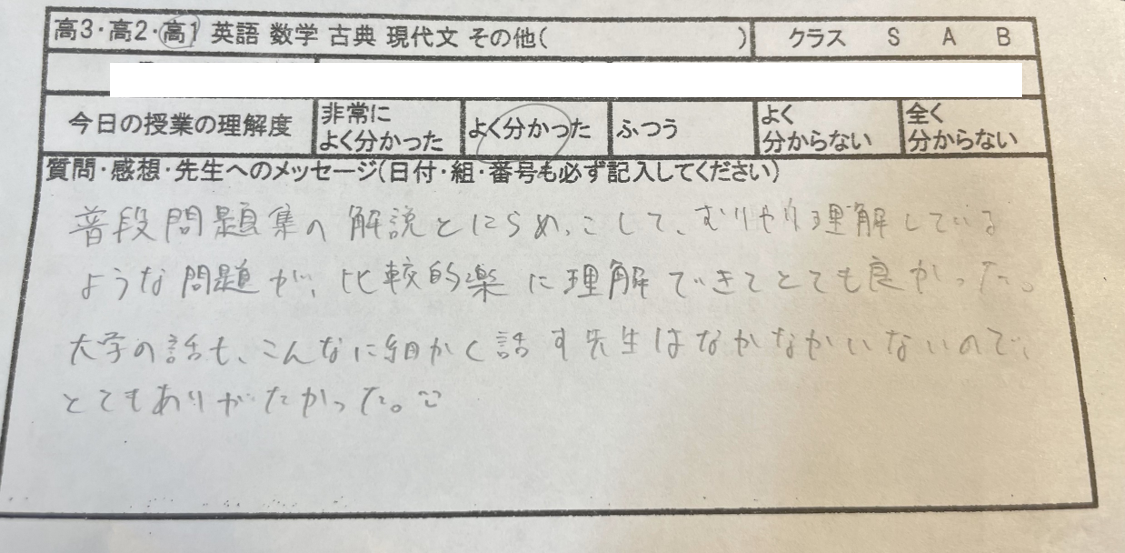 高3・高2・高1 英語 数学 古典 現代文 その他( ) クラス S A B
今日の授業の理解度
非常に
よく分かった
よく分かった
ふつう
よく
分からない
全く
分からない
質問・感想・先生へのメッセージ(日付・組・番号も必ず記入してください)
普段問題集の解説とにらめっこして、むりやり理解している
ような問題が、比較的楽に理解できてとても良かった。
大学の話も、こんなに細かく話す先生はなかなかいないので、
とてもありがたかった。